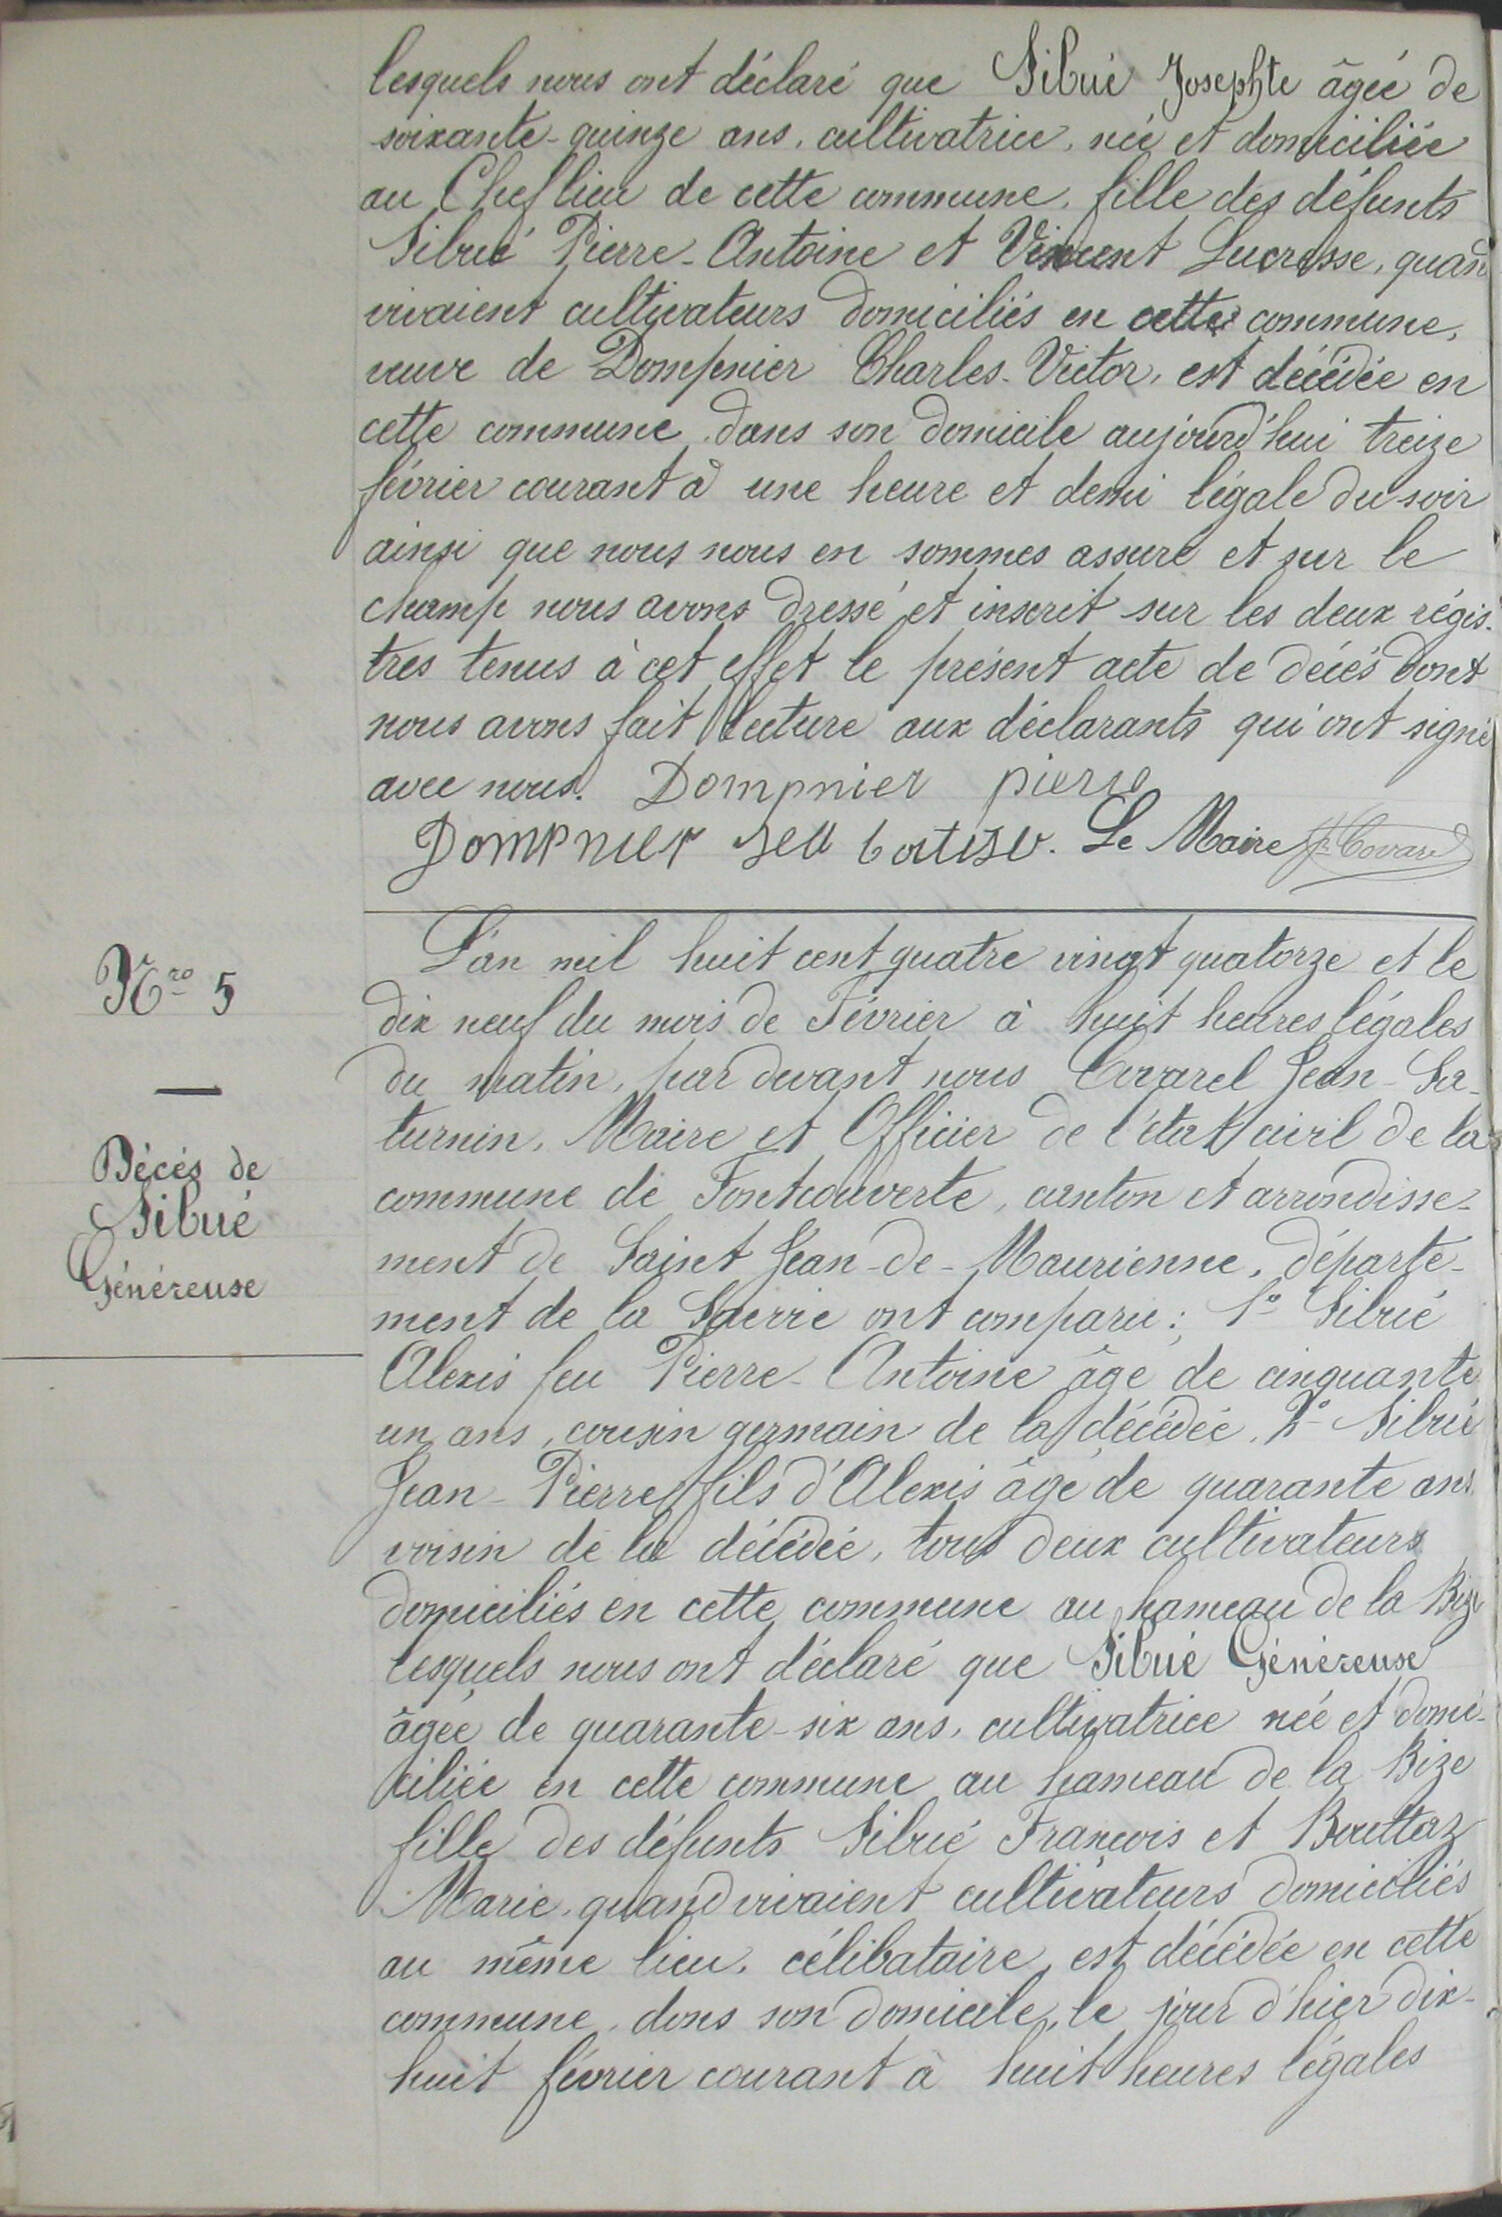 lesquels nous ont déclaré que Sibué Josephte âgée de
soixante-quinze ans, cultivatrice, née et domiciliée
au Cheflieu de cette commune, fille des défunts
Sibué Pierre-Antoine et Vincent Lucresse, quand
vivaient cultivateurs domiciliés en cette commune,
veuve de Dompnier Charles-Victor, est décédée en
cette commune, dans son domicile aujourd'hui treize
février courant à une heure et demi légale du soir
ainsi que nous nous en sommes assuré et sur le
champ nous avons dressé et inscrit sur les deux régis-
tres tenus à cet effet le présent acte de décés dont
nous avons fait lecture aux déclarants qui ont signé
avec nous. Dompnier pierre
Dompnier Jea batise. Le Maire JS Covarel
Nro 5
Décés de
Sibué
Généreuse
L'an mil huit cent quatre vingt quatorze et le
dix neuf du mois de Février à huit heures légales
du matin, par devant nous Covarel Jean-Sa-
turnin, Maire et Officier de l'état civil de la
commune de Fontcouverte, canton et arrondisse-
ment de Saint Jean-de-Maurienne, départe-
ment de la Savoie ont comparu: 1° Sibué
Alexis feu Pierre-Antoine âgé de cinquante
un ans, cousin germain de la décédée, 2° Sibué
Jean-Pierre fils d'Alexis âgé de quarante ans
voisin de la décédée, tous deux cultivateurs
domiciliés en cette commune au hameau de la Bize
lesquels nous ont déclaré que Sibué Généreuse
âgée de quarante-six ans, cultivatrice née et domi-
ciliée en cette commune au hameau de la Bize
fille des défunts Sibué François et Bouttaz
Marie, quand vivaient cultivateurs domiciliés
au même lieu, célibataire, est décédée en cette
commune, dans son domicile, le jour d'hier dix-
huit février courant à huit heures légales